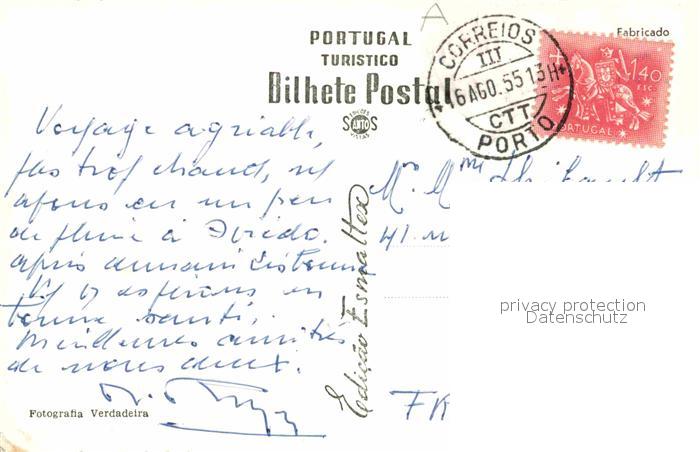 A
PORTUGAL
TURISTICO
Bilhete Postal
Fabricado
CORREIOS
III
6 AGO. 55 13H
CTT
PORTO
1$40
ESC
PORTUGAL
EDIÇÕES
SANTOS
VISTAS
Voyage agréable,
pas trop chaud,
avons eu un peu
de pluie à Oviedo.
après demain Lisbonne
en
bonne santé.
Meilleures amitiés
de nous deux.
Fotografia Verdadeira
Edição Esmaltex
Mr Mme
41
FR
privacy protection
Datenschutz